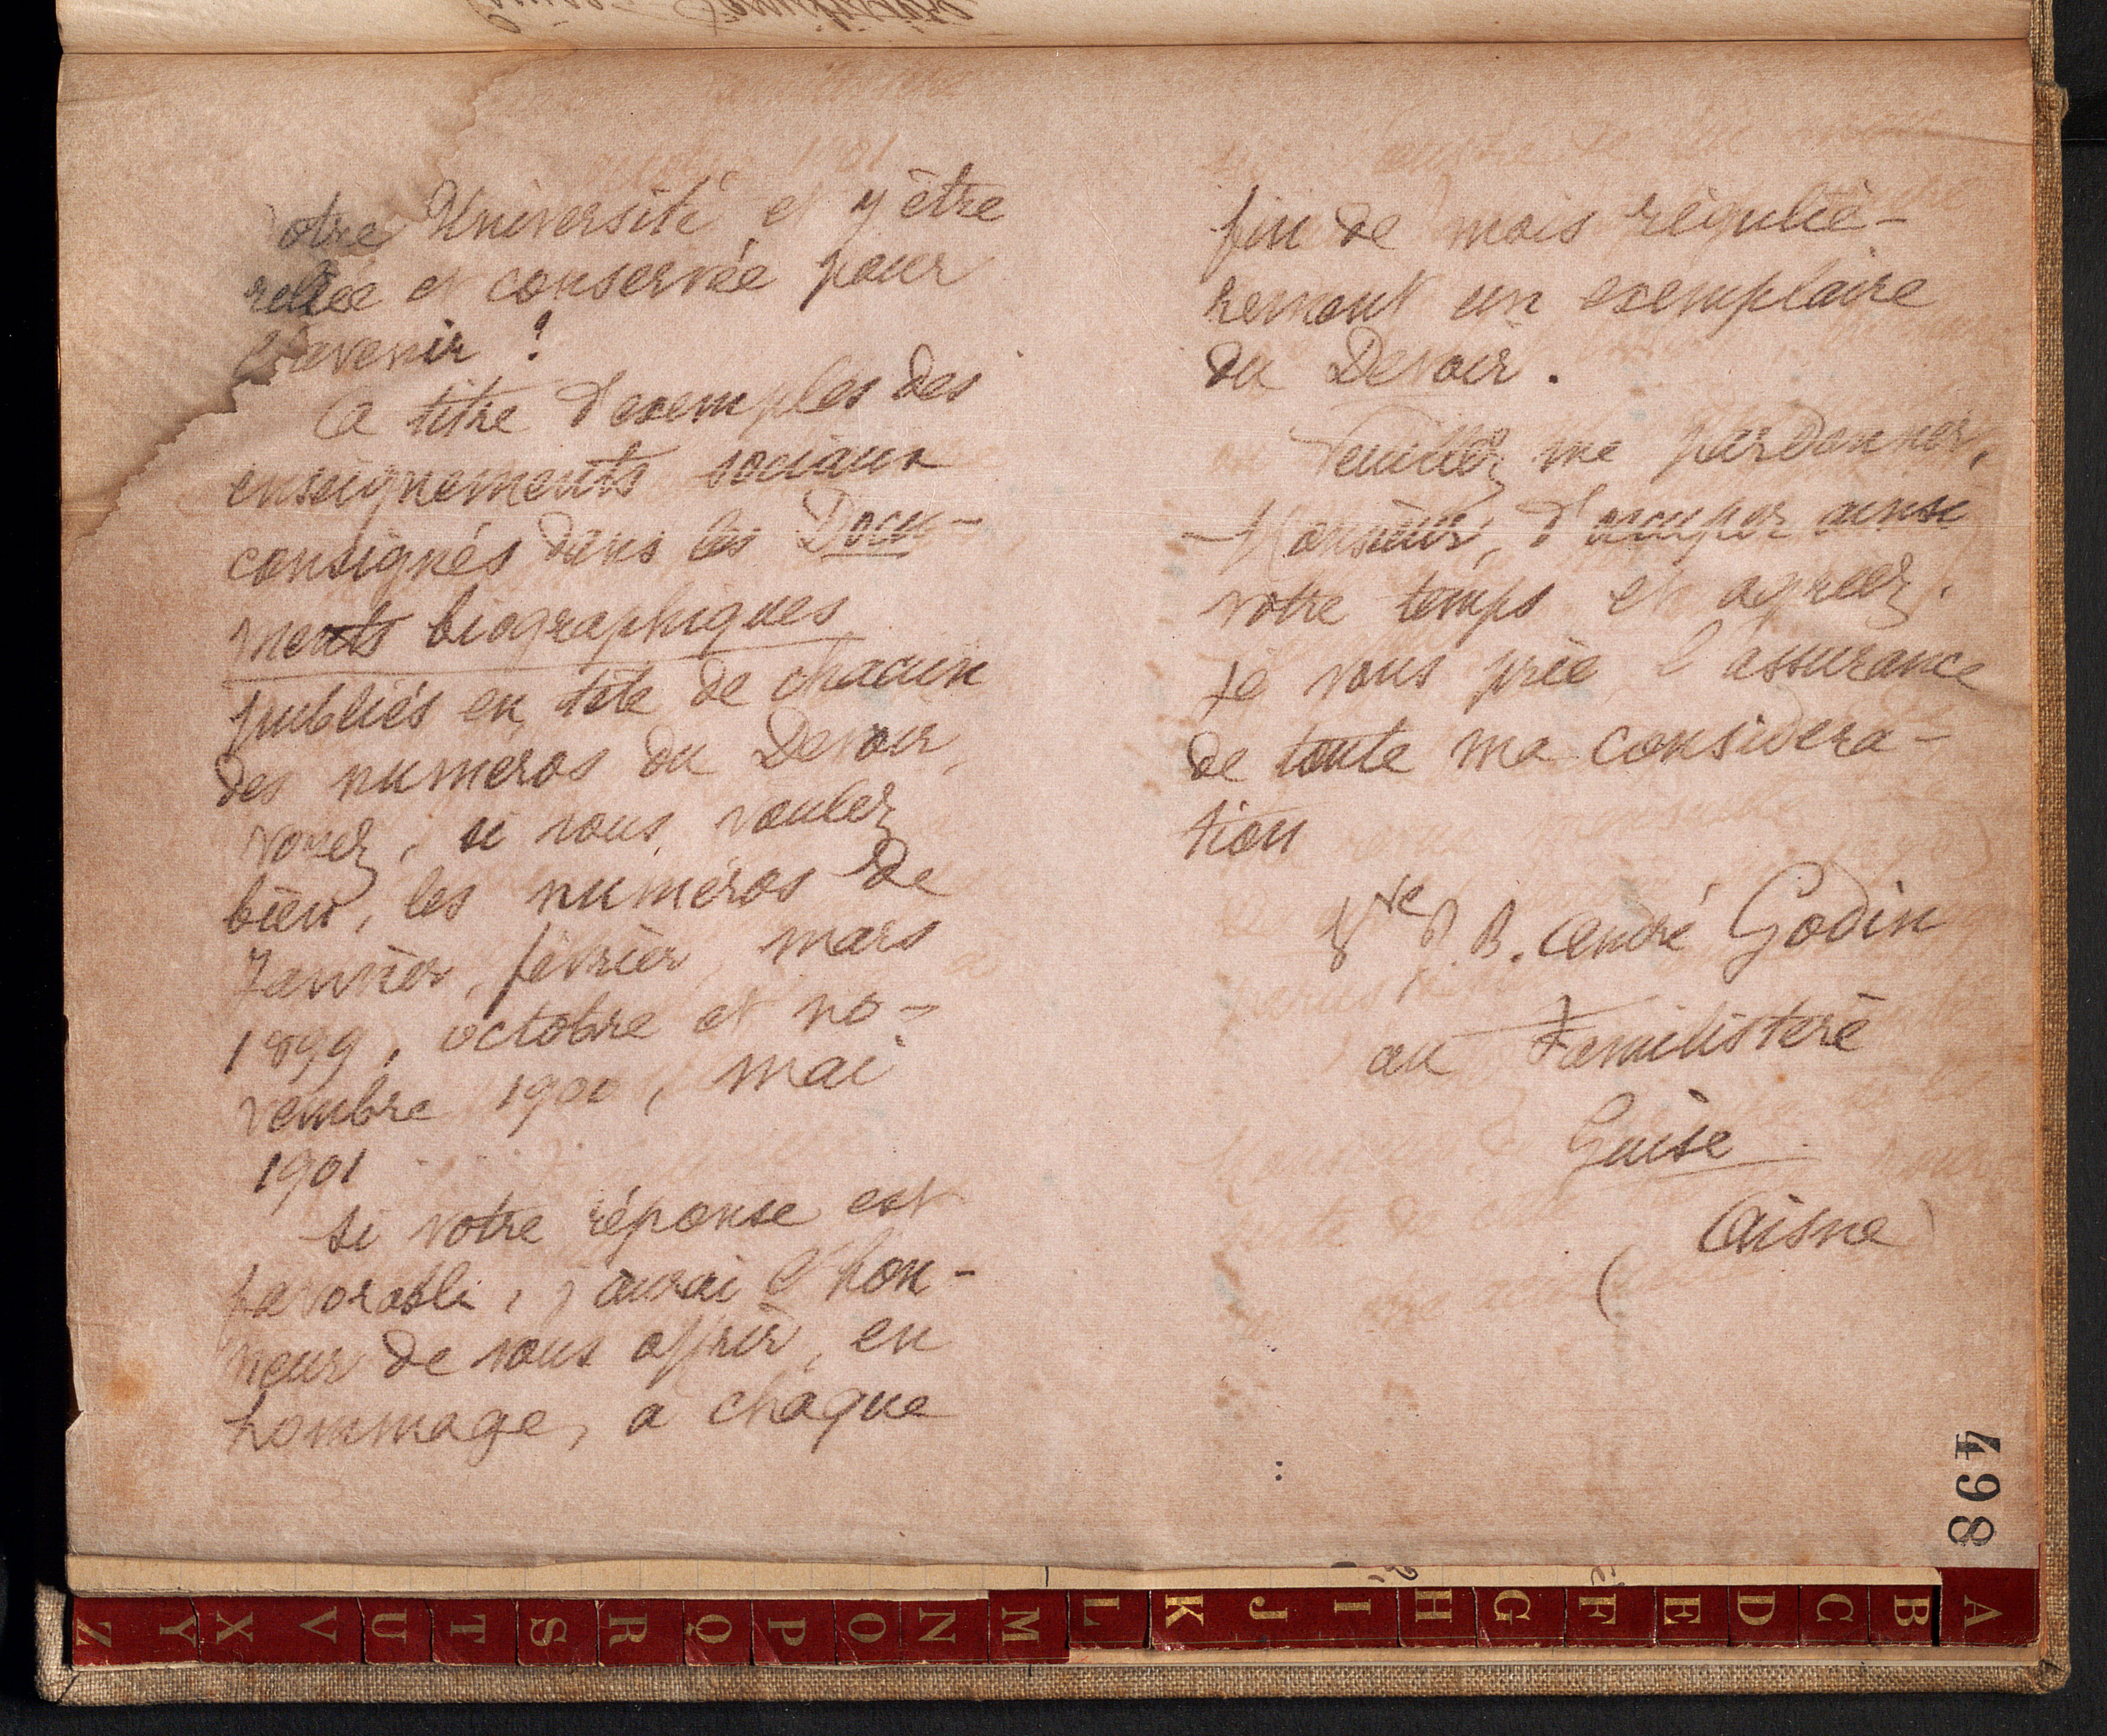 otre Université et y être
reliée et conservée pour
l'avenir ?
A titre d'exemples des
enseignements sociaux
consignés dans les Docu-
ments biographiques
publiés en tête de chacun
des numeros du Devoir,
voyez, si vous voulez
bien, les numéros de
Janvier, février, mars
1899, octobre et no-
vembre 1900, mai
1901
Si votre réponse est
favorable, j'aurai l'hon-
neur de vous offrir, en
hommage, à chaque
fin de mois réguliè-
rement un exemplaire
du Devoir.
Veuillez me pardonner,
Monsieur, d'occuper ainsi
votre temps et agréez,
je vous prie l'assurance
de toute ma considera-
tion
Vve J. B. André Godin
au Familistère
Guise
(Aisne)
498
Z Y X V U T S R Q P O N M L K J I H G F E D C B A